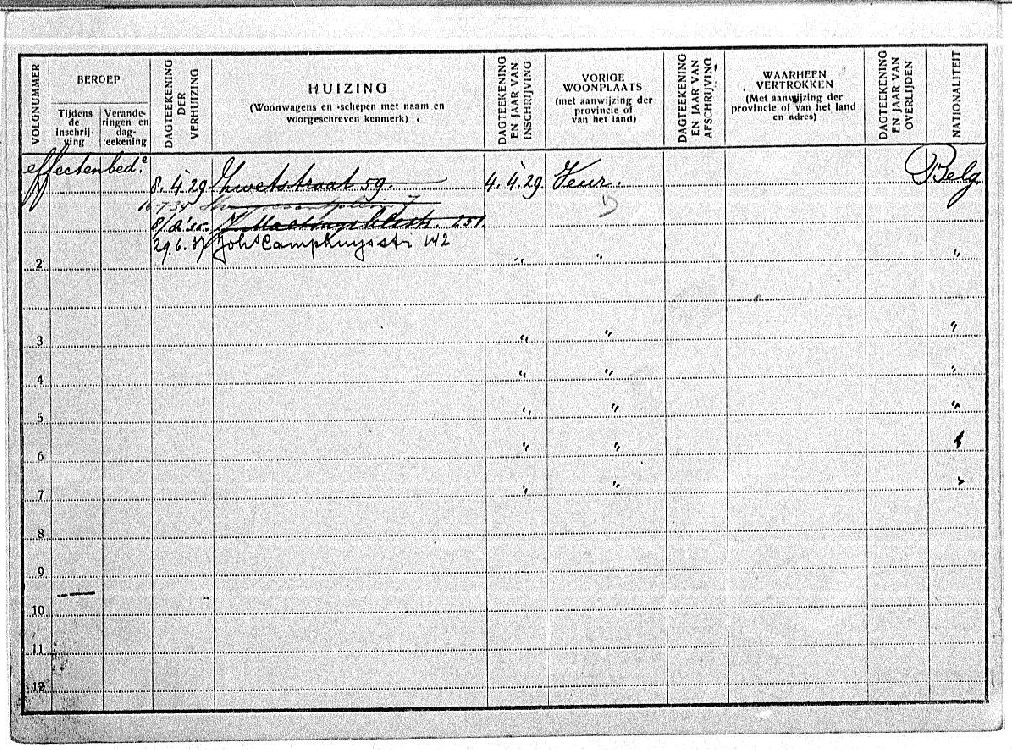 VOLGNUMMER
BEROEP
Tijdens de inschrij- ving
Verande- ringen en dag- teekening
DAGTEEKENING DER VERHUIZING
HUIZING
(Woonwagens en -schepen met naam en
voorgeschreven kenmerk)
DAGTEEKENING EN JAAR VAN INSCHRIJVING
VORIGE WOONPLAATS
(met aanwijzing der provincie of van het land)
DAGTEEKENING EN JAAR VAN AFSCHRIJVING
WAARHEEN VERTROKKEN
(Met aanwijzing der provincie of van het land en adres)
DAGTEEKENING EN JAAR VAN OVERLIJDEN
NATIONALITEIT
effectenbed.e
8.4.29 Zwetstraat 59. 4.4.29. Veur. Belg
16.7.34
251
29.6.37 Joh.s Camphuysstr 142
2 " " "
3 " " "
4 " " "
5 " " "
6 " "
7 " "
8
9
10
11
12